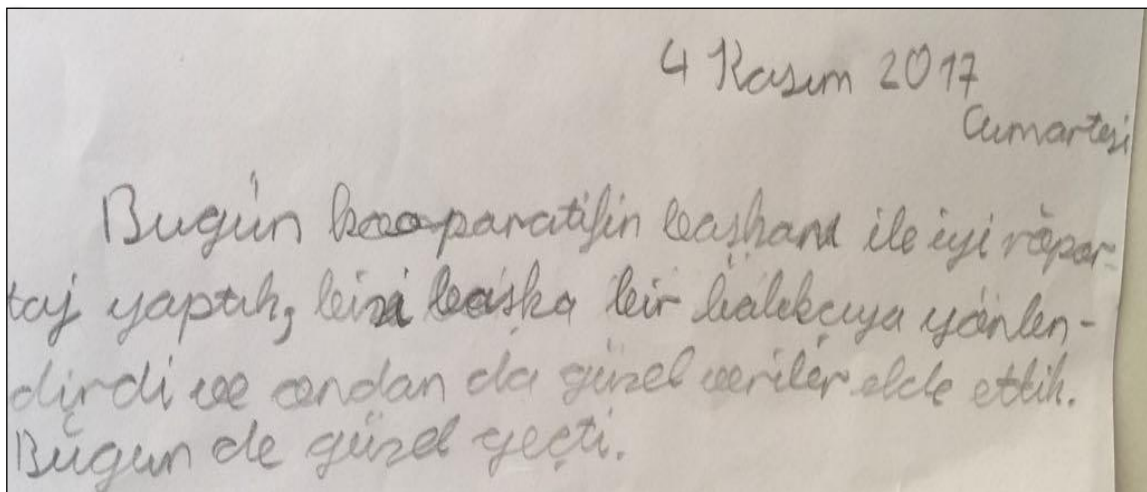 4 Kasım 2017
Cumartesi
Bugün kooparatifin başkanı ile iyi röpor-
taj yaptık, bizi başka bir balıkçıya yönlen-
dirdi ve ondan da güzel veriler elde ettik.
Bugün de güzel geçti.